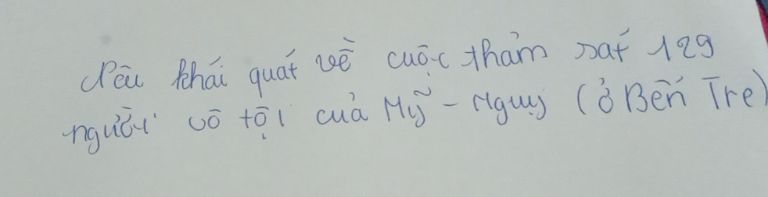 Nêu khái quát về cuộc thảm sát 129
người vô tội của Mỹ - Ngụy (ở Bến Tre)